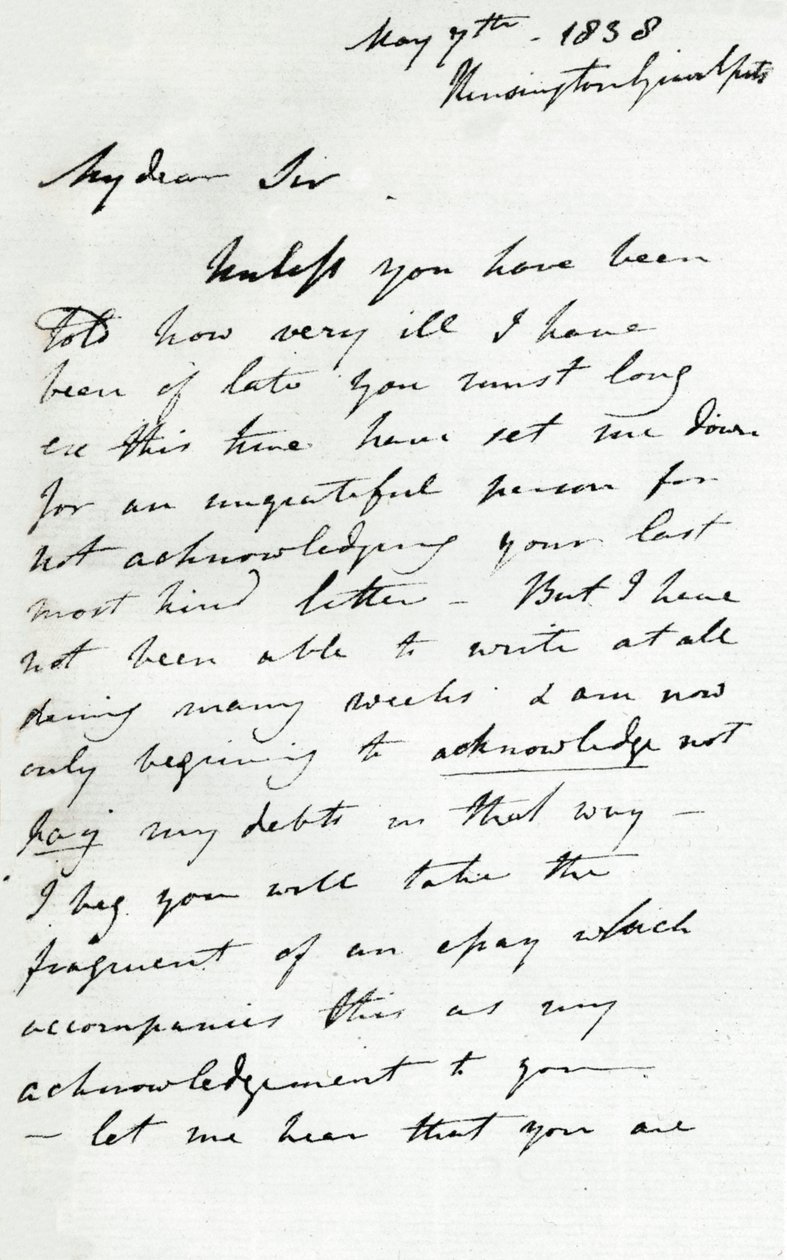 May 7th - 1838
Kensington Gravel pits
My dear Sir
Unless you have been
told how very ill I have
been of late you must long
ere this time have set me down
for an ungrateful person for
not acknowledging your last
most kind letter - But I have
not been able to write at all
during many weeks & am now
only beginning to acknowledge not
pay my debts in that way -
I beg you will take the
fragment of an essay which
accompanies this as my
acknowledgement to you
- let me hear that you are